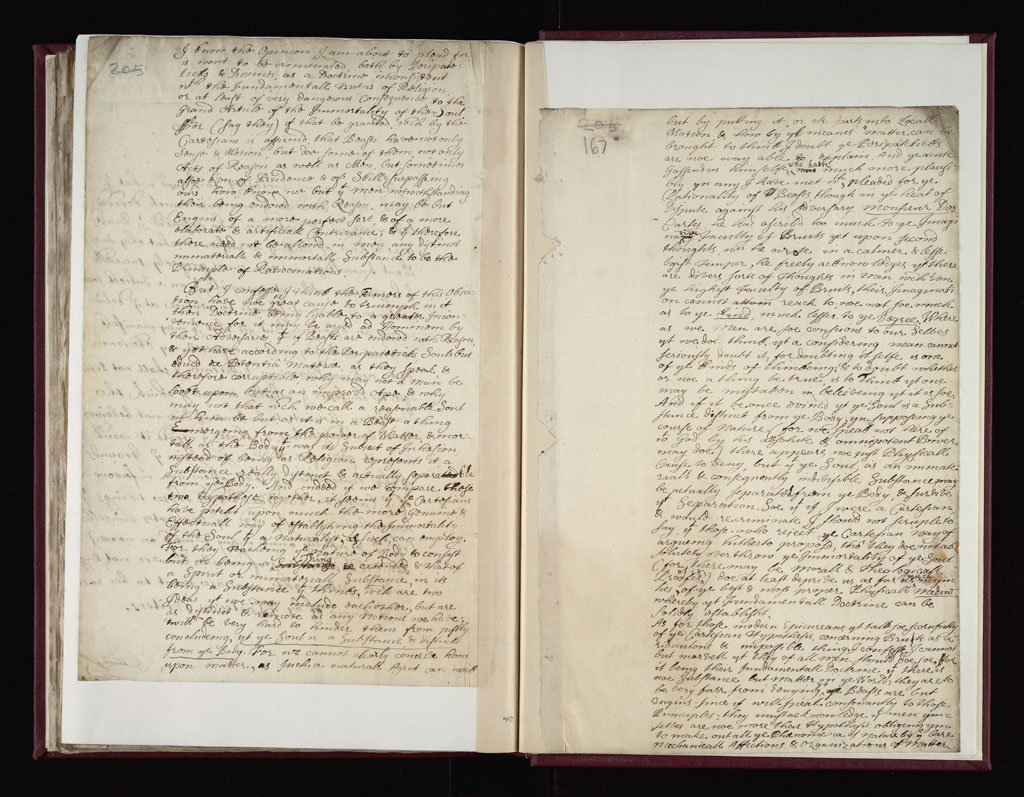 205
I know the Opinion I am about to plead for
is wont to be criminated both by Peripate-
ticks & Divines, as a Doctrine inconsistent
wth the fundamentall truths of Religion
or at least of very dangerous Consequence to the
Grand Article of the Immortality of the Soul
For (say they) if that be granted, wch by the
Cartesians is affirmd, that Beasts have not only
Sense & Motion, but doe some of them not only
Acts of Reason as well as Men, but sometimes
allso of Providence & of Skill surpassing
ours, how know we but yt men notwithstanding
their being endowd with Reason, may be but
Engins of a more perfect sort & of a more
elaborate & artificiall Contrivance; & yt therefore
there need not be allowd in men any distinct
immateriall & immortall Substance to be the
Principle of Ratiocination.
But I confesse I think the Framers of this Objec-
tion, have noe great cause to triumph in it
their Doctrine being lyable to a greater Incon-
venience, for it may be urg'd ad Hominem by
their Adversaries yt if Beasts are endowd with Reason,
& yet have according to the Peripateticks Souls but
educd ex Potentia Materiae as they speak &
therefore corruptible why may not a man be
lookt upon but as an improvd Ape & why
may not that wch we call a reasonable Soul
in him be but as it is in a Beast a thing
emergeing from the power of Matter & mor-
tall as the Body yt was its Subject of Inhesion
instead of being as Religion represents it a
Substance really distinct & actually separable
from ye Body. And indeed if we compare these
two Hypotheses together, it seems yt ye Cartesians
have pitcht upon much the more Genuine &
Effectuall way of establishing the Immortality
of the Soul yt a Naturalist, as such can employ.
For they Teacheing ye Nature of Body to consist
but in being a Thing extended & that of
Spirit or immateriall Substance, in its
being a Substance yt thinks, wch are two
Ideas yt we may include each other, but are
as distinct & remote as any Notions we have:
twill be very hard to hinder them from justly
concluding, yt ye Soul is a Substance & distinct
from ye Body. For we cannot clearly conceive how
upon matter, as such a naturall Agent can work
206
167
but by putting it, or its parts into Locall
Motion & how by yt means matter can be
brought to think I doubt ye Peripateticks
are noe way able to explain And ye acute
Gassendus himselfe who hath much more plausi-
bly yn any I have met wth, pleaded for ye
Rationality of Beasts though in ye heat of
Dispute against his Adversary Monsieur Des
Cartes he had ascribd too much to ye Imagi-
native Faculty of Bruits yet upon Second
thoughts wn he wrote in a calmer & lesse
byast Temper, he freely acknowledges yt there
are divers sorts of Thoughts in Men wch even
ye highest faculty of Bruits, their Imaginati-
on cannot reach to, noe not soe much
as to ye Kind much lesse to ye Degree. Where
as we Men are soe conscious to our Selves
yt we doe think, yt a considering man cannot
seriously doubt it, for doubting it selfe is one
of ye kinds of thinkeing; & to doubt whether
or noe a thing be true, is to think yt one
may be mistaken in beleiveing yt it is soe.
And if it be once evincd yt ye Soul is a Sub-
stance distinct from ye Body: yn supposeing ye
course of Nature (for we speak not here of
wt God by his absolute & omnipotent Power
may doe) there appears noe just Physicall
Cause to deny, but yt ye Soul, as an immate-
riall & consequently indivisible Substance may
be actually separated from ye Body, & survive
yt Separation. Soe yt if I were a Cartesian,
& would recriminate I should not scruple to
say yt those who reject ye Cartesian way of
argueing hitherto proposd, tho they doe not ab-
solutely overthrow ye Immortality of ye Soul
(for there may be Morall & Theologicall
Proofes of it) doe at least deprive us as far as in ym
lies of ye best & most proper Physicall Medium
whereby yt fundamentall Doctrine can be
solidly establishd.
As for those modern Epicureans yt talk soe scornfully
of ye Cartesian Hypothesis concerning Bruits as a
ridiculous & impossible thing, I confesse I cannot
but marvell yt they of all men should doe soe, for
it being their fundamentall doctrine yt there is
noe Substance but Matter in ye World; they are to
be very farr from denying, yt Beasts are but
Engins: since if will speak consonantly to those
Principles; they must acknowledge yt men ym-
selves are noe more their Hypothesis obligeing ym
to make out all ye Phaenomena of Nature by ye bare
Mechanicall Affections & Organizations of Matter